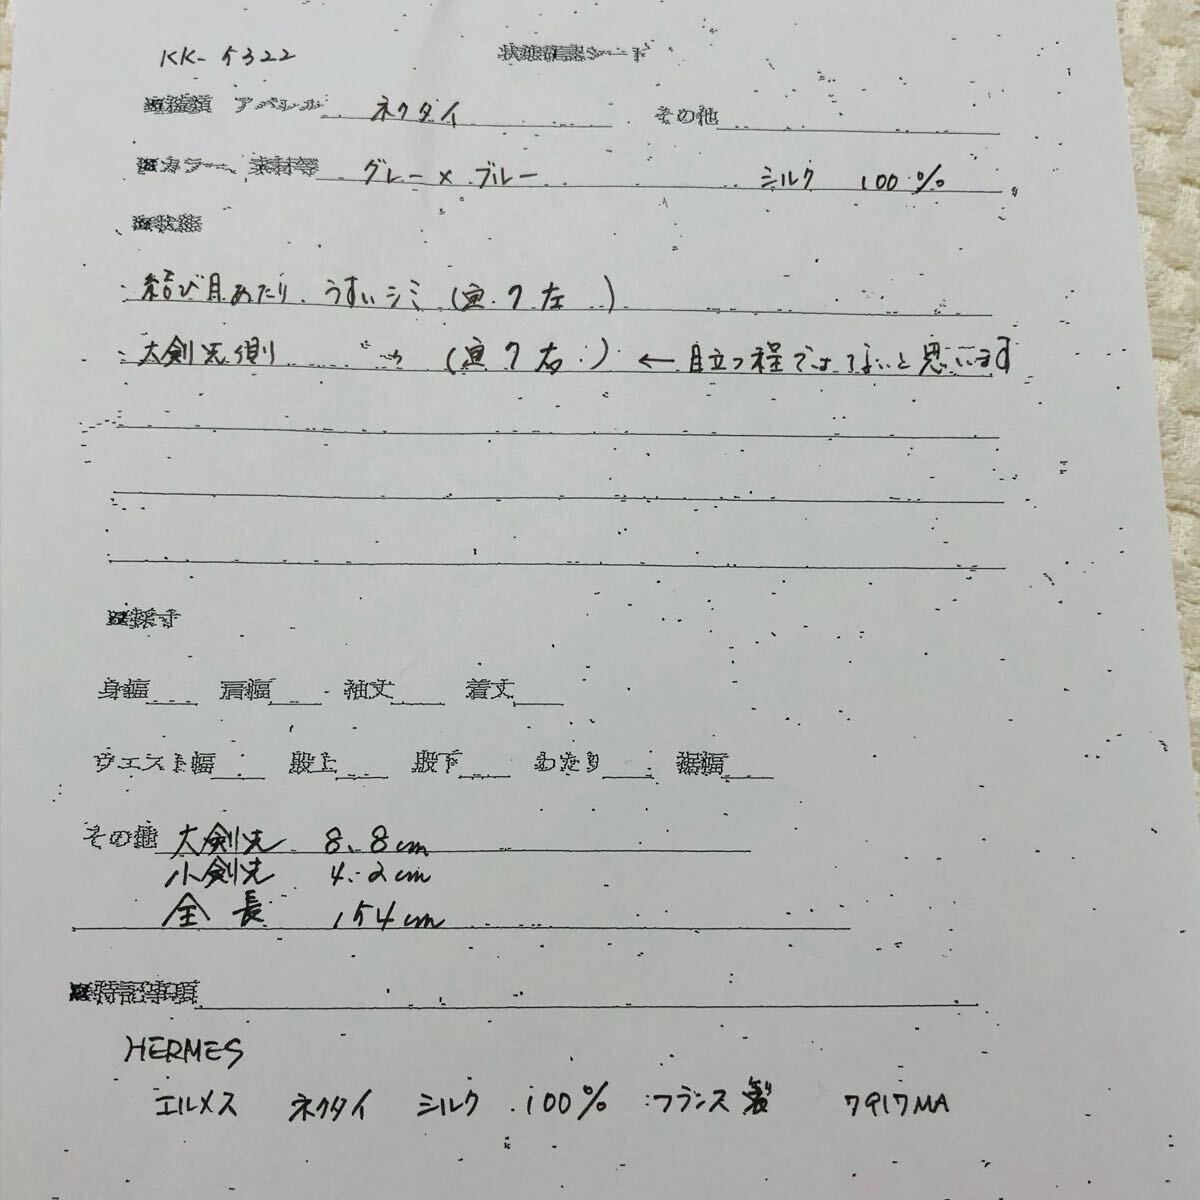 KK-5322 状態確認シート
■種類 アパレル ネクタイ その他
■カラー、素材等 グレー×ブルー シルク 100%
■状態
・結び目あたり、うすいシミ(画7左)
・大剣先側 〃 (画7右) ← 目立つ程ではないと思います
■採寸
身幅 肩幅 袖丈 着丈
ウエスト幅 股上 股下 わたり 裾幅
その他 大剣先 8.8cm
小剣先 4.2cm
全長 154cm
■特記事項
HERMES
エルメス ネクタイ シルク 100% フランス製 7917MA